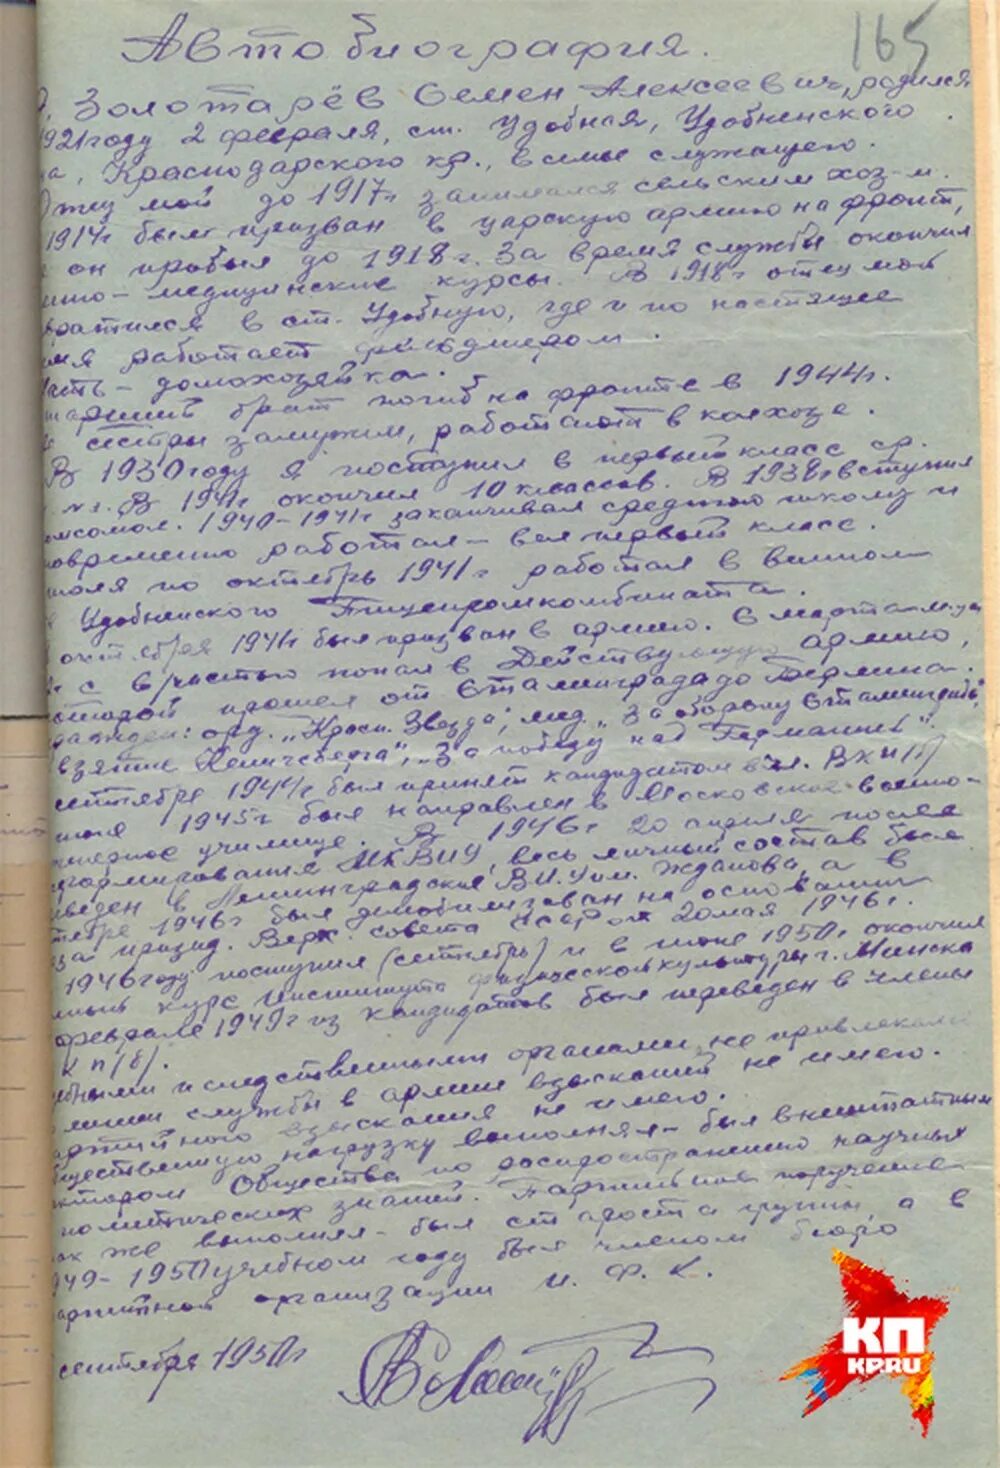 165
Автобиография.
Золотарёв Семен Алексеевич, родился
1921 году 2 февраля, ст. Удобная, Удобненского
на, Краснодарского кр., в семье служащего.
Отец мой до 1917г занимался сельским хоз-м.
1914г был призван в царскую армию на фронт,
он пробыл до 1918г. За время службы окончил
но-медицинские курсы. В 1918г отец мой
вратился в ст. Удобную, где и по настоящее
мя работает фельдшером.
Мать - домохозяйка.
старший брат погиб на фронте в 1944г.
сестры замужем, работают в колхозе.
В 1930 году я поступил в первый класс ср.
№1. В 1941г окончил 10 классов. В 1938г вступил
комсомол. 1940-1941г заканчивал среднюю школу и
новременно работал - вел первый класс.
июля по октябрь 1941г работал в винном
Удобненского Пищепромкомбината.
октября 1941г был призван в армию. С марта м-ца
с частью попал в Действующую армию,
которой прошел от Сталинграда до Берлина.
гражден: орд. "Красн. Звезда", мед. "За оборону Сталинграда",
взятие Кенигсберга", "За победу над Германией".
сентября 1944г был принят кандидатом в чл. ВКП(б)
1945г был направлен в Московское военно-
женерное училище. В 1946г 20 апреля после
расформирования МКВИУ, весь личный состав был
веден в Ленинградское В.И.У им. Жданова, а в
1946г был демобилизован на основании
каза презид. Верх. совета СССР от 20 мая 1946г.
1946 году поступил (сентябрь) и в июне 1950г окончил
лный курс Института физической культуры г. Минска
феврале 1949г из кандидатов был переведен в члены
КП(б).
дебными и следственными органами не привлекался
службы в армии взысканий не имею.
партийного взыскания не имею.
бщественную нагрузку выполнял - был внештатным
ктором Общества по распространению научных
политических знаний. Партийное поручение
ак же выполнял - был староста группы, а в
1949-1950 учебном году был членом бюро
партийной организации И.Ф.К.
сентября 1950г
КП
KP.RU